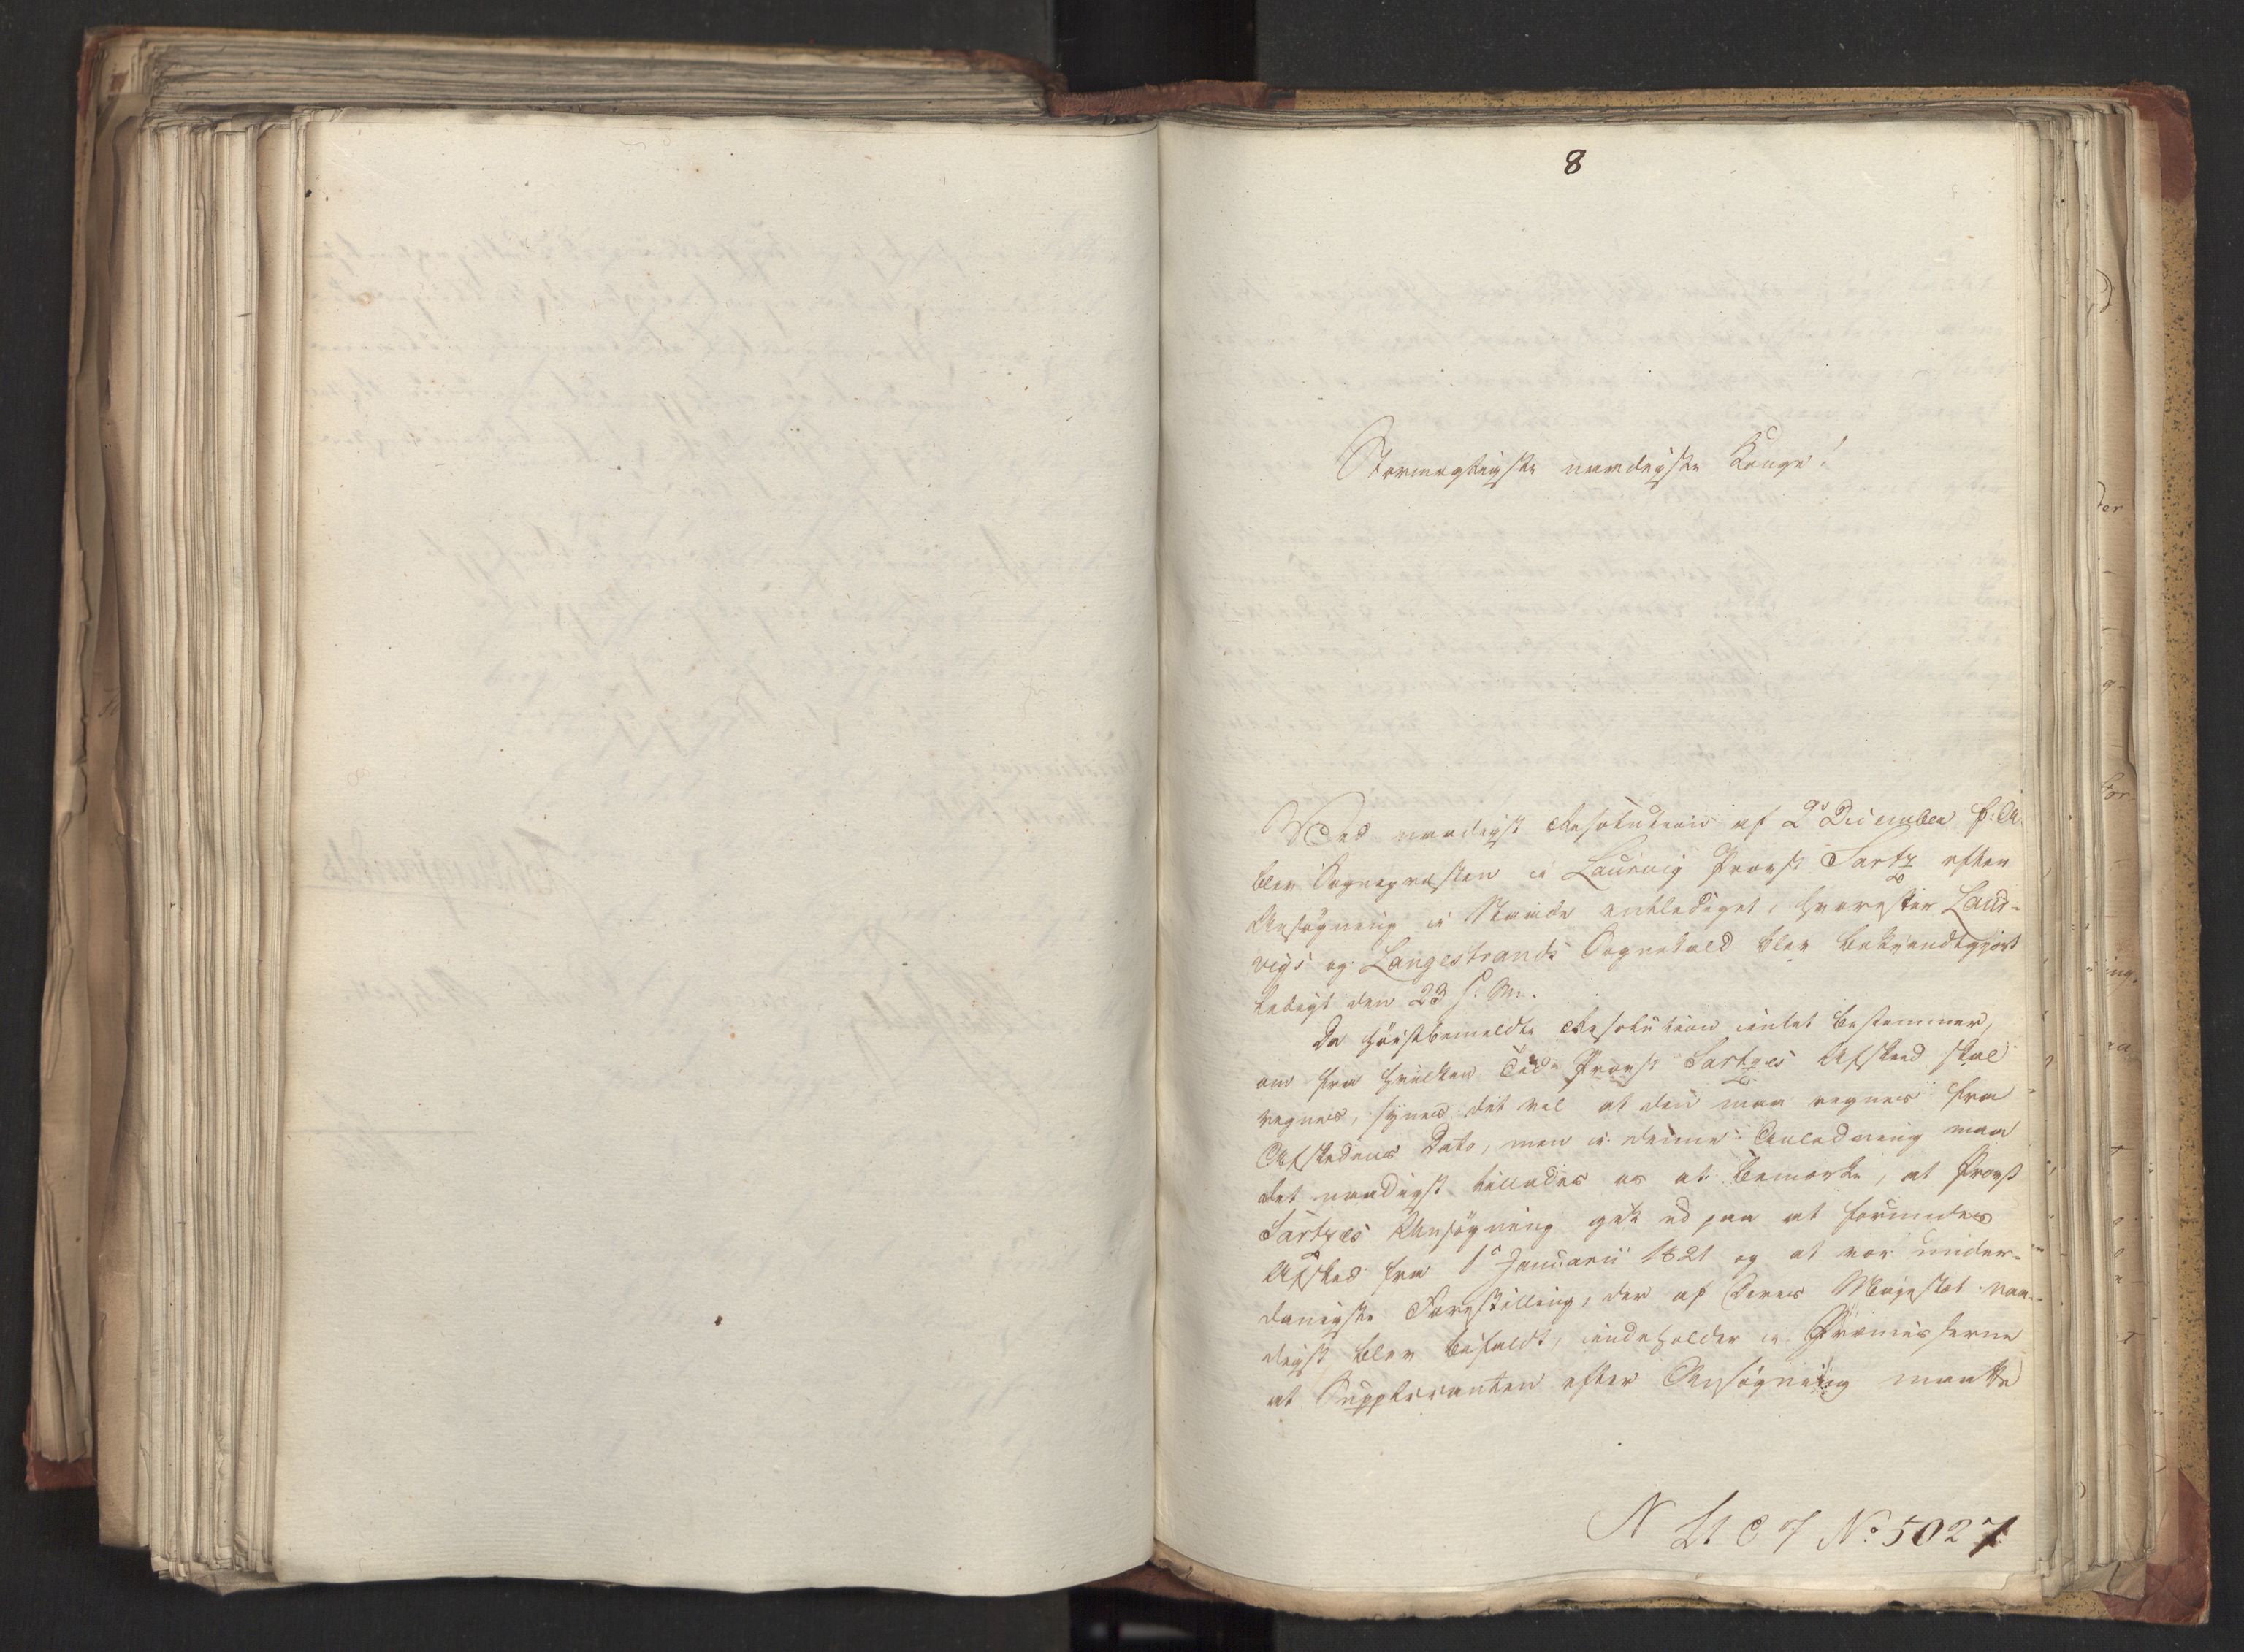 8
Stormægtigste naadigste Konge!
Ved naadigst Resolution af 2den December f: A.
blev Sognepræsten i Laurvig Provst Sartz efter
Ansøgning i Naade entlediget, hvorefter Laur-
vigs og Langestrands Sognekald blev bekjendtgjort
ledigt den 23 s. M..
Da høistbemeldte Resolution intet bestemmer,
om fra hvilken Tid Provst Sartzes Afsked skal
regnes, synes det vel at den maa regnes fra
Afskedens Dato, men i denne Anledning maa
det naadigst tillades os at bemærke, at Provst
Sartzes Ansøgning gik ud paa at forundes
Afsked fra 1ste Januarii 1821 og at vor under-
danigste Forestilling, der af Deres Majestæt naa-
digst blev bifaldt, indeholder i Præmisserne
at Supplicanten efter Ansøgning maatte
N Lt C 7 No 5027